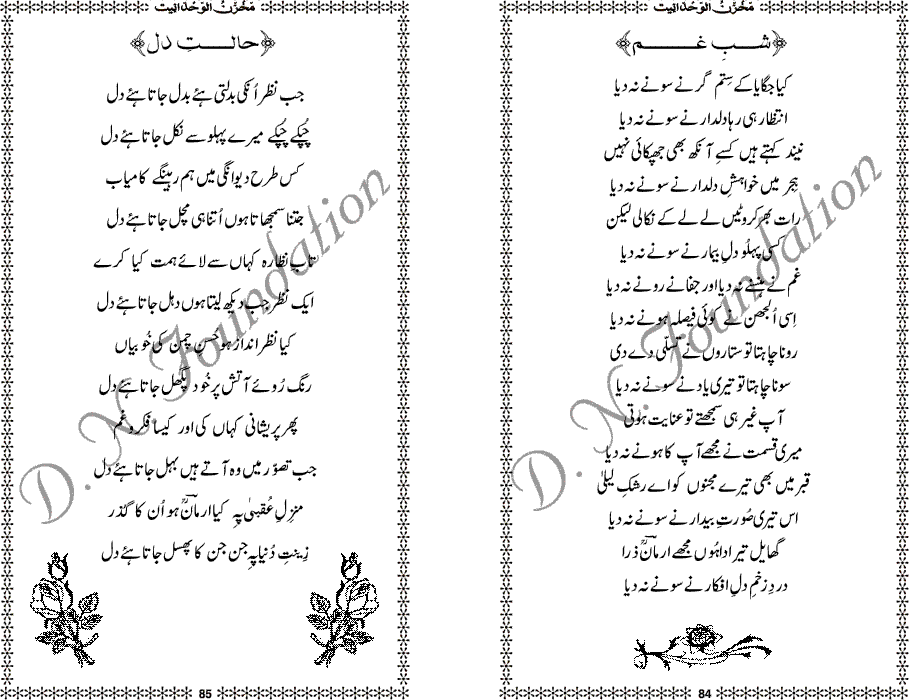 مَخْزَنُ الوَحْدَانِیت
شبِ غم
کیا جگایا کے سِتم گر نے سونے نہ دیا
انتظار ہی رہا دلدار نے سونے نہ دیا
نیند کہتے ہیں کسے آنکھ بھی جھپکائی نہیں
ہجر میں خواہشِ دلدار نے سونے نہ دیا
رات بھر کروٹیں لے لے کے نکالی لیکن
کسی پہلو دلِ بیمار نے سونے نہ دیا
غم نے ہنسنے نہ دیا اور جفا نے رونے نہ دیا
اِسی اُلجھن نے کوئی فیصلہ ہونے نہ دیا
رونا چاہتا تو ستاروں نے تسلّی دے دی
سونا چاہتا تو تیری یاد نے سونے نہ دیا
آپ غیر ہی سمجھتے تو عنایت ہوتی
میری قسمت نے مجھے آپ کا ہونے نہ دیا
قبر میں بھی تیرے مجنوں کو اے رشکِ لیلیٰ
اس تیری صُورتِ بیدار نے سونے نہ دیا
گھایل تیر ادا ہُوں مجھے ارمانؔ ذرا
دردِ زخمِ دلِ افکار نے سونے نہ دیا
84
مَخْزَنُ الوَحْدَانِیت
حالتِ دل
جب نظر اُنکی بدلتی ہئے بدل جاتا ہئے دل
چُپکے چُپکے میرے پہلو سے نکل جاتا ہئے دل
کس طرح دیوانگی میں ہم رہینگے کامیاب
جتنا سمجھاتا ہوں اُتنا ہی مچل جاتا ہئے دل
تابِ نظارہ کہاں سے لائے ہمت کیا کرے
ایک نظر جب دیکھ لیتا ہوں دہل جاتا ہئے دل
کیا نظر انداز ہو حُسنِ چمن کی خُوبیاں
رنگ رُوئے آتش پر خُود پگھل جاتا ہئے دل
پھر پریشانی کہاں کی اور کیسا فکر و غم
جب تصوّر میں وہ آتے ہیں بہل جاتا ہئے دل
منزلِ عُقبیٰ پہ کیا ارمانؔ ہو اُن کا گذر
زینتِ دُنیا پہ جن جن کا پھسل جاتا ہئے دل
85
D. N. Foundation
D. N. Foundation